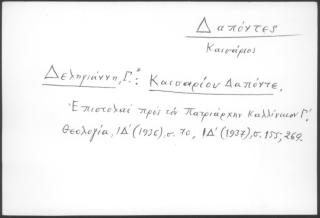 Δαπόντες
Καισάριος
Δεληγιάννη, Γ.: Καισαρίου Δαπόντε.
Ἐπιστολαὶ πρὸς τὸν Πατριάρχην Καλλίνικον Γ΄.
Θεολογία, ΙΔ΄ (1936), σ. 70, ΙΔ΄ (1937), σ. 155, 269.